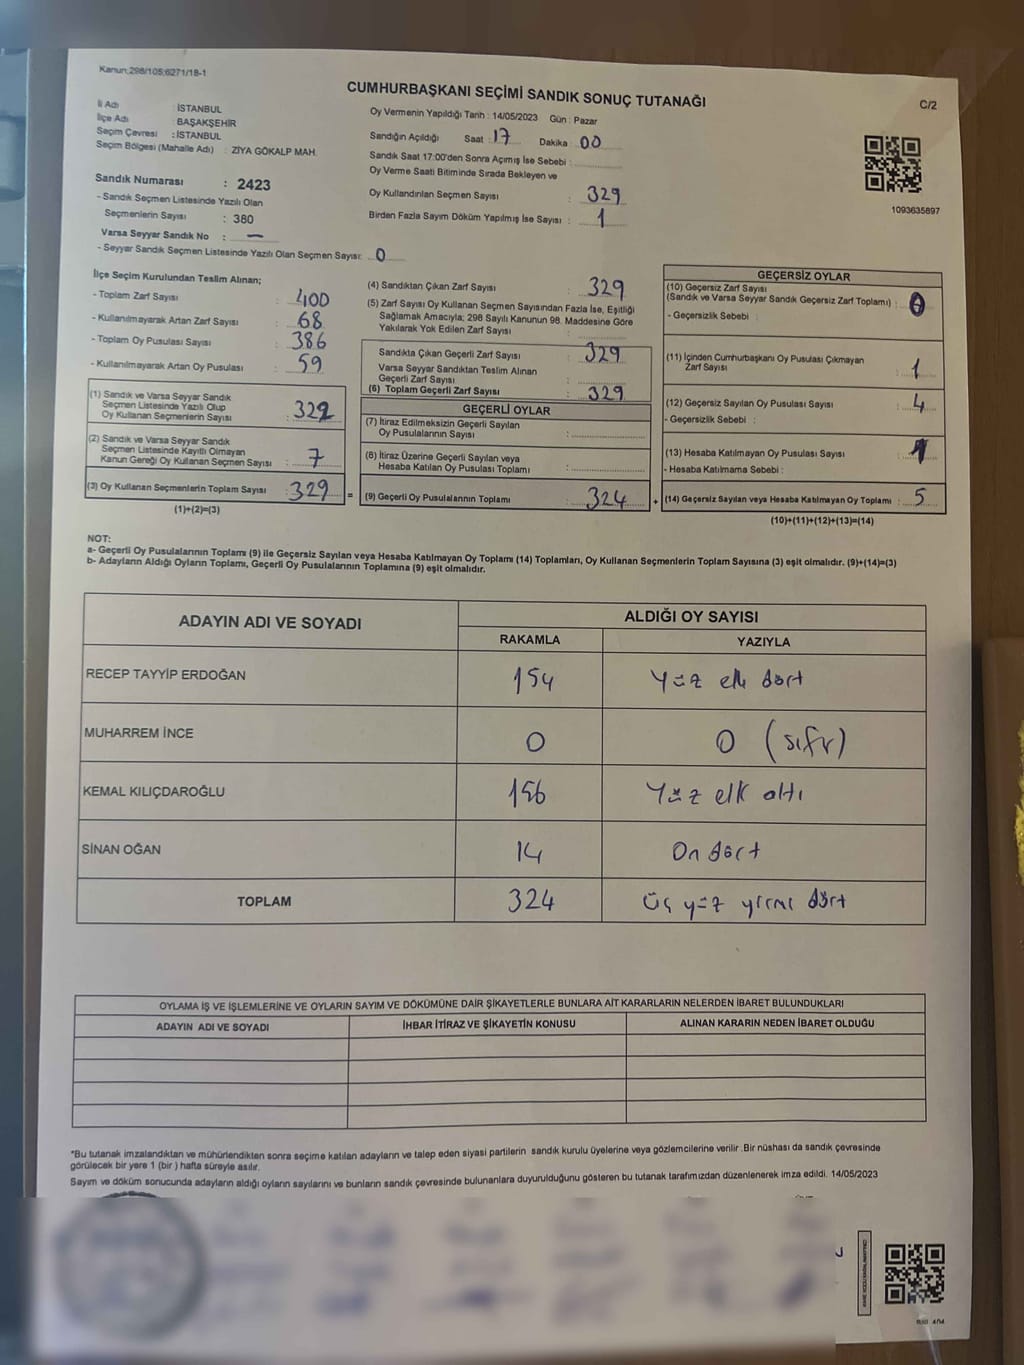 Kanun:298/105;6271/18-1
CUMHURBAŞKANI SEÇİMİ SANDIK SONUÇ TUTANAĞI
C/2
İl Adı : İSTANBUL
İlçe Adı : BAŞAKŞEHİR
Seçim Çevresi : İSTANBUL
Seçim Bölgesi (Mahalle Adı) : ZİYA GÖKALP MAH.
Sandık Numarası : 2423
- Sandık Seçmen Listesinde Yazılı Olan
Seçmenlerin Sayısı : 380
Varsa Seyyar Sandık No : —
- Seyyar Sandık Seçmen Listesinde Yazılı Olan Seçmen Sayısı: 0
Oy Vermenin Yapıldığı Tarih : 14/05/2023 Gün : Pazar
Sandığın Açıldığı Saat : 17 Dakika : 00
Sandık Saat 17:00'den Sonra Açımış İse Sebebi :
Oy Verme Saati Bitiminde Sırada Bekleyen ve
Oy Kullandırılan Seçmen Sayısı : 329
Birden Fazla Sayım Döküm Yapılmış İse Sayısı : 1
1093635897
İlçe Seçim Kurulundan Teslim Alınan;
- Toplam Zarf Sayısı : 400
- Kullanılmayarak Artan Zarf Sayısı : 68
- Toplam Oy Pusulası Sayısı : 386
- Kullanılmayarak Artan Oy Pusulası : 59
(1) Sandık ve Varsa Seyyar Sandık
Seçmen Listesinde Yazılı Olup
Oy Kullanan Seçmenlerin Sayısı : 322
(2) Sandık ve Varsa Seyyar Sandık
Seçmen Listesinde Kayıtlı Olmayan
Kanun Gereği Oy Kullanan Seçmen Sayısı : 7
(3) Oy Kullanan Seçmenlerin Toplam Sayısı : 329 =
(1)+(2)=(3)
(4) Sandıktan Çıkan Zarf Sayısı : 329
(5) Zarf Sayısı Oy Kullanan Seçmen Sayısından Fazla İse, Eşitliği
Sağlamak Amacıyla; 298 Sayılı Kanunun 98. Maddesine Göre
Yakılarak Yok Edilen Zarf Sayısı :
Sandıkta Çıkan Geçerli Zarf Sayısı : 329
Varsa Seyyar Sandıktan Teslim Alınan
Geçerli Zarf Sayısı :
(6) Toplam Geçerli Zarf Sayısı : 329
GEÇERLİ OYLAR
(7) İtiraz Edilmeksizin Geçerli Sayılan
Oy Pusulalarının Sayısı :
(8) İtiraz Üzerine Geçerli Sayılan veya
Hesaba Katılan Oy Pusulası Toplamı :
(9) Geçerli Oy Pusulalarının Toplamı : 324 +
GEÇERSİZ OYLAR
(10) Geçersiz Zarf Sayısı
(Sandık ve Varsa Seyyar Sandık Geçersiz Zarf Toplamı) : 0
- Geçersizlik Sebebi :
(11) İçinden Cumhurbaşkanı Oy Pusulası Çıkmayan
Zarf Sayısı : 1
(12) Geçersiz Sayılan Oy Pusulası Sayısı : 4
- Geçersizlik Sebebi :
(13) Hesaba Katılmayan Oy Pusulası Sayısı :
- Hesaba Katılmama Sebebi :
(14) Geçersiz Sayılan veya Hesaba Katılmayan Oy Toplamı : 5
(10)+(11)+(12)+(13)=(14)
NOT:
a- Geçerli Oy Pusulalarının Toplamı (9) ile Geçersiz Sayılan veya Hesaba Katılmayan Oy Toplamı (14) Toplamları, Oy Kullanan Seçmenlerin Toplam Sayısına (3) eşit olmalıdır. (9)+(14)=(3)
b- Adayların Aldığı Oyların Toplamı, Geçerli Oy Pusulalarının Toplamına (9) eşit olmalıdır.
ADAYIN ADI VE SOYADI
ALDIĞI OY SAYISI
RAKAMLA YAZIYLA
RECEP TAYYİP ERDOĞAN 154 Yüz elli dört
MUHARREM İNCE 0 0 (sıfır)
KEMAL KILIÇDAROĞLU 156 Yüz elli altı
SİNAN OĞAN 14 On dört
TOPLAM 324 Üç yüz yirmi dört
OYLAMA İŞ VE İŞLEMLERİNE VE OYLARIN SAYIM VE DÖKÜMÜNE DAİR ŞİKAYETLERLE BUNLARA AİT KARARLARIN NELERDEN İBARET BULUNDUKLARI
ADAYIN ADI VE SOYADI İHBAR İTİRAZ VE ŞİKAYETİN KONUSU ALINAN KARARIN NEDEN İBARET OLDUĞU
*Bu tutanak imzalandıktan ve mühürlendikten sonra seçime katılan adayların ve talep eden siyasi partilerin sandık kurulu üyelerine veya gözlemcilerine verilir .Bir nüshası da sandık çevresinde
görülecek bir yere 1 (bir ) hafta süreyle asılır.
Sayım ve döküm sonucunda adayların aldığı oyların sayılarını ve bunların sandık çevresinde bulunanlara duyurulduğunu gösteren bu tutanak tarafımızdan düzenlenerek imza edildi. 14/05/2023